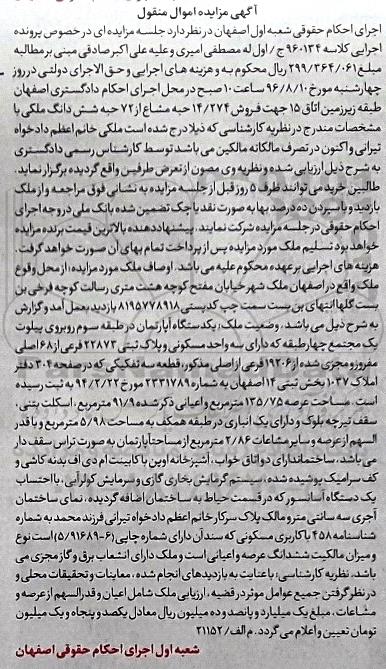 آگهی مزایده اموال منقول
اجرای احکام حقوقی شعبه اول اصفهان در نظر دارد جلسه مزایده ای در خصوص پرونده
اجرایی کلاسه ۹۶۰۱۳۴ ج/ اول له مصطفی امیری و علیه علی اکبر صادقی مبنی بر مطالبه
مبلغ ۲۹۹/۳۶۴/۰۶۱ ریال محکوم به و هزینه های اجرایی و حق الاجرای دولتی در روز
چهارشنبه مورخ ۹۶/۸/۱۰ ساعت ۱۰ صبح در محل اجرای احکام دادگستری اصفهان
طبقه زیرزمین اتاق ۱۵ جهت فروش ۱۴/۲۷۴ حبه مشاع از ۷۲ حبه شش دانگ ملکی با
مشخصات مندرج در نظریه کارشناسی که ذیلا درج شده است ملکی خانم اعظم دادخواه
تیرانی و اکنون در تصرف مالکانه مالکین می باشد توسط کارشناس رسمی دادگستری
به شرح ذیل ارزیابی شده و نظریه وی مصون از تعرض طرفین واقع گردیده برگزار نماید.
طالبین خرید می توانند ظرف ۵ روز قبل از جلسه مزایده به نشانی فوق مراجعه و از ملک
بازدید و با سپردن ده درصد بها به صورت نقد یا چک تضمین شده بانک ملی در وجه اجرای
احکام حقوقی در جلسه مزایده شرکت نمایند. پیشنهاددهنده بالاترین قیمت برنده مزایده
خواهد بود تسلیم ملک مورد مزایده پس از پرداخت تمام بهای آن صورت خواهد گرفت.
هزینه های اجرایی بر عهده محکوم علیه می باشد. اوصاف ملک مورد مزایده: از محل وقوع
ملک واقع در اصفهان ملک شهر خیابان مفتح کوچه هشت متری رسالت کوچه فرخی بن
بست گلها انتهای بن بست سمت چپ کدپستی ۸۱۹۵۷۷۸۹۱۸ بازدید بعمل آمد و گزارش
به شرح ذیل می باشد. وضعیت ملک: یکدستگاه آپارتمان در طبقه سوم روبروی پیلوت
یک مجتمع چهار طبقه که دارای سه واحد مسکونی و پلاک ثبتی ۲۲۸۷۳ فرعی از ۶۸ اصلی
مفروز و مجزی شده از ۱۹۲۰۶ فرعی از اصلی مذکور، قطعه سه تفکیکی که در صفحه ۳۰۴ دفتر
املاک ۱۰۳۷ بخش ثبتی ۱۴ اصفهان به شماره ۲۳۳۱۷۸۹ مورخ ۹۴/۲/۲۲ به ثبت رسیده
است. مساحت عرصه ۱۳۵/۷۵ مترمربع و اعیانی ذکر شده ۹۱/۹ مترمربع، اسکلت بتنی،
سقف تیرچه بلوک و دارای یک انباری در طبقه همکف به مساحت ۵/۹۸ مترمربع و با قدر
السهم از عرصه و سایر مشاعات ۲/۸۶ مترمربع از مساحت آپارتمان به صورت تراس سقف دار
می باشد. ساختمان دارای دو اتاق خواب، آشپزخانه اوپن با کابینت ام دی اف بدنه کاشی و
کف سرامیک پوشیده شده، سیستم گرمایش بخاری گازی و سرمایش کولر آبی، با احتساب
یک دستگاه آسانسور که در قسمت حیاط به ساختمان اضافه گردیده، نمای ساختمان
آجری سه سانتی متر و مالک پلاک سرکار خانم اعظم دادخواه تیرانی فرزند محمد به شماره
شناسنامه ۴۵۸ با کاربری مسکونی که سند آن دارای شماره چاپی (۶-۵/۹۱۶۸۹) است نوع
و میزان مالکیت ششدانگ عرصه و اعیانی است و ملک دارای انشعاب برق و گاز مجزی می
باشد. نظریه کارشناسی: با عنایت به بازدیدهای انجام شده، معاینات و تحقیقات محلی و
در نظر گرفتن جمیع عوامل موثر در قضیه، ارزیابی ملک شامل اعیان و قدرالسهم از عرصه و
مشاعات، مبلغ یک میلیارد و پانصد و ده میلیون ریال معادل یکصد و پنجاه و یک میلیون
تومان تعیین و اعلام می گردد. م الف/ ۲۱۱۵۲
شعبه اول اجرای احکام حقوقی اصفهان